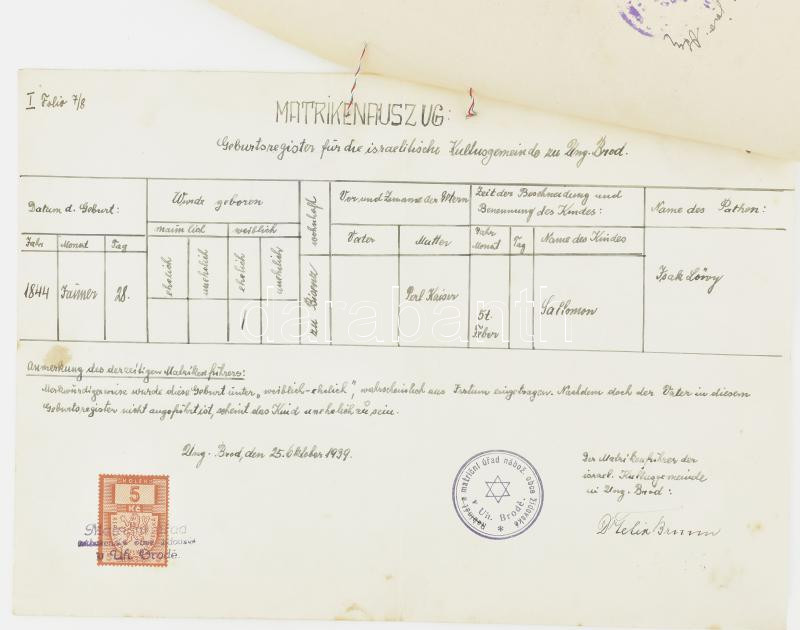 I Folio 7/8
MATRIKENAUSZUG:
Geburtsregister für die israelitische Kultusgemeinde zu Ung. Brod.
Datum d. Geburt:
Jahr Monat Tag
1844 Jänner 28.
Wurde geboren
männlich weiblich
ehelich unehelich ehelich unehelich
1
wohnhaft
zu
Vor und Zuname der Eltern
Vater Mutter
Perl Kaiser
Zeit der Beschneidung und
Benennung des Kindes:
Jahr Monat Tag Name des Kindes
5t. Feber
Sallomon
Name des Pathen:
Isak Löwy
darabanth
Anmerkung des derzeitigen Matrikenführers:
Merkwürdigerweise wurde diese Geburt unter „weiblich-ehelich", wahrscheinlich aus Irrtum eingetragen. Nachdem doch der Vater in diesem
Geburtsregister nicht angeführt ist, scheint das Kind unehelich zu sein.
Ung. Brod, den 25. Oktober 1939.
Der Matrikenführer der
israel. Kultusgemeinde
in Ung. Brod:
Dr Felix Brunn
a matriční úřad nábož. obce židovské
v Uh. Brodě.
KOLEK
5
Kč
v Uh. Brodě.